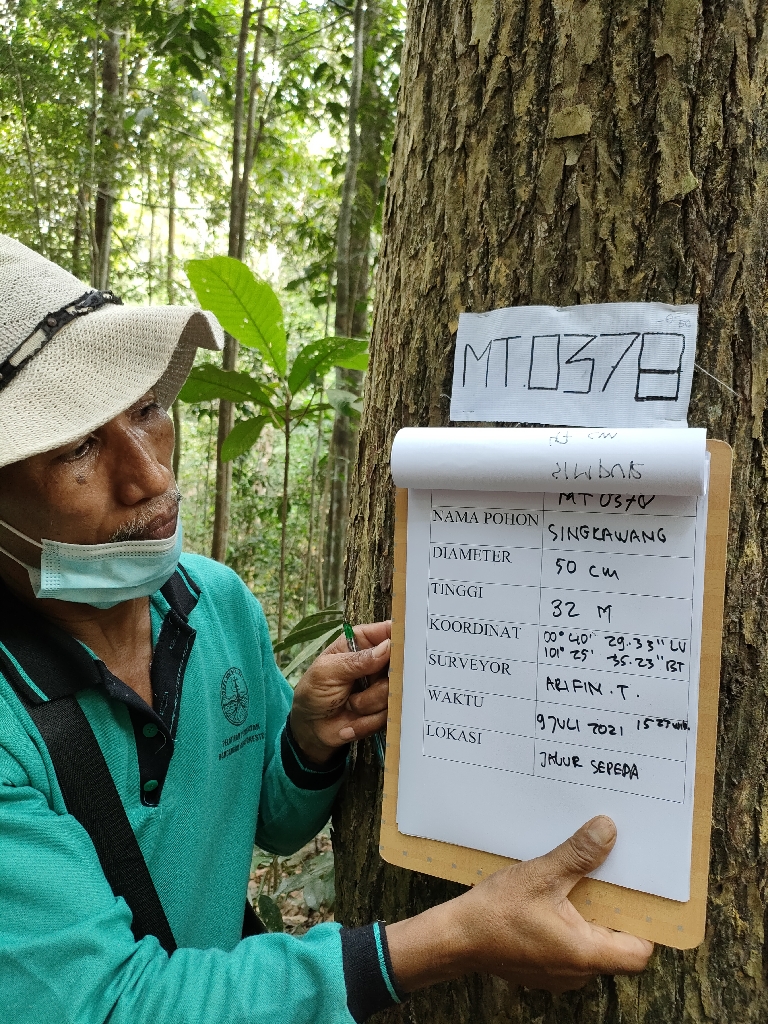 MT.0378
MT0378
NAMA POHON SINGKAWANG
DIAMETER 50 cm
TINGGI 32 M
KOORDINAT 00° 40' 29.33" LU
101° 25' 35.23" BT
SURVEYOR ARIFIN.T.
WAKTU 9 JULI 2021 15:27 WIB
LOKASI JALUR SEPEDA